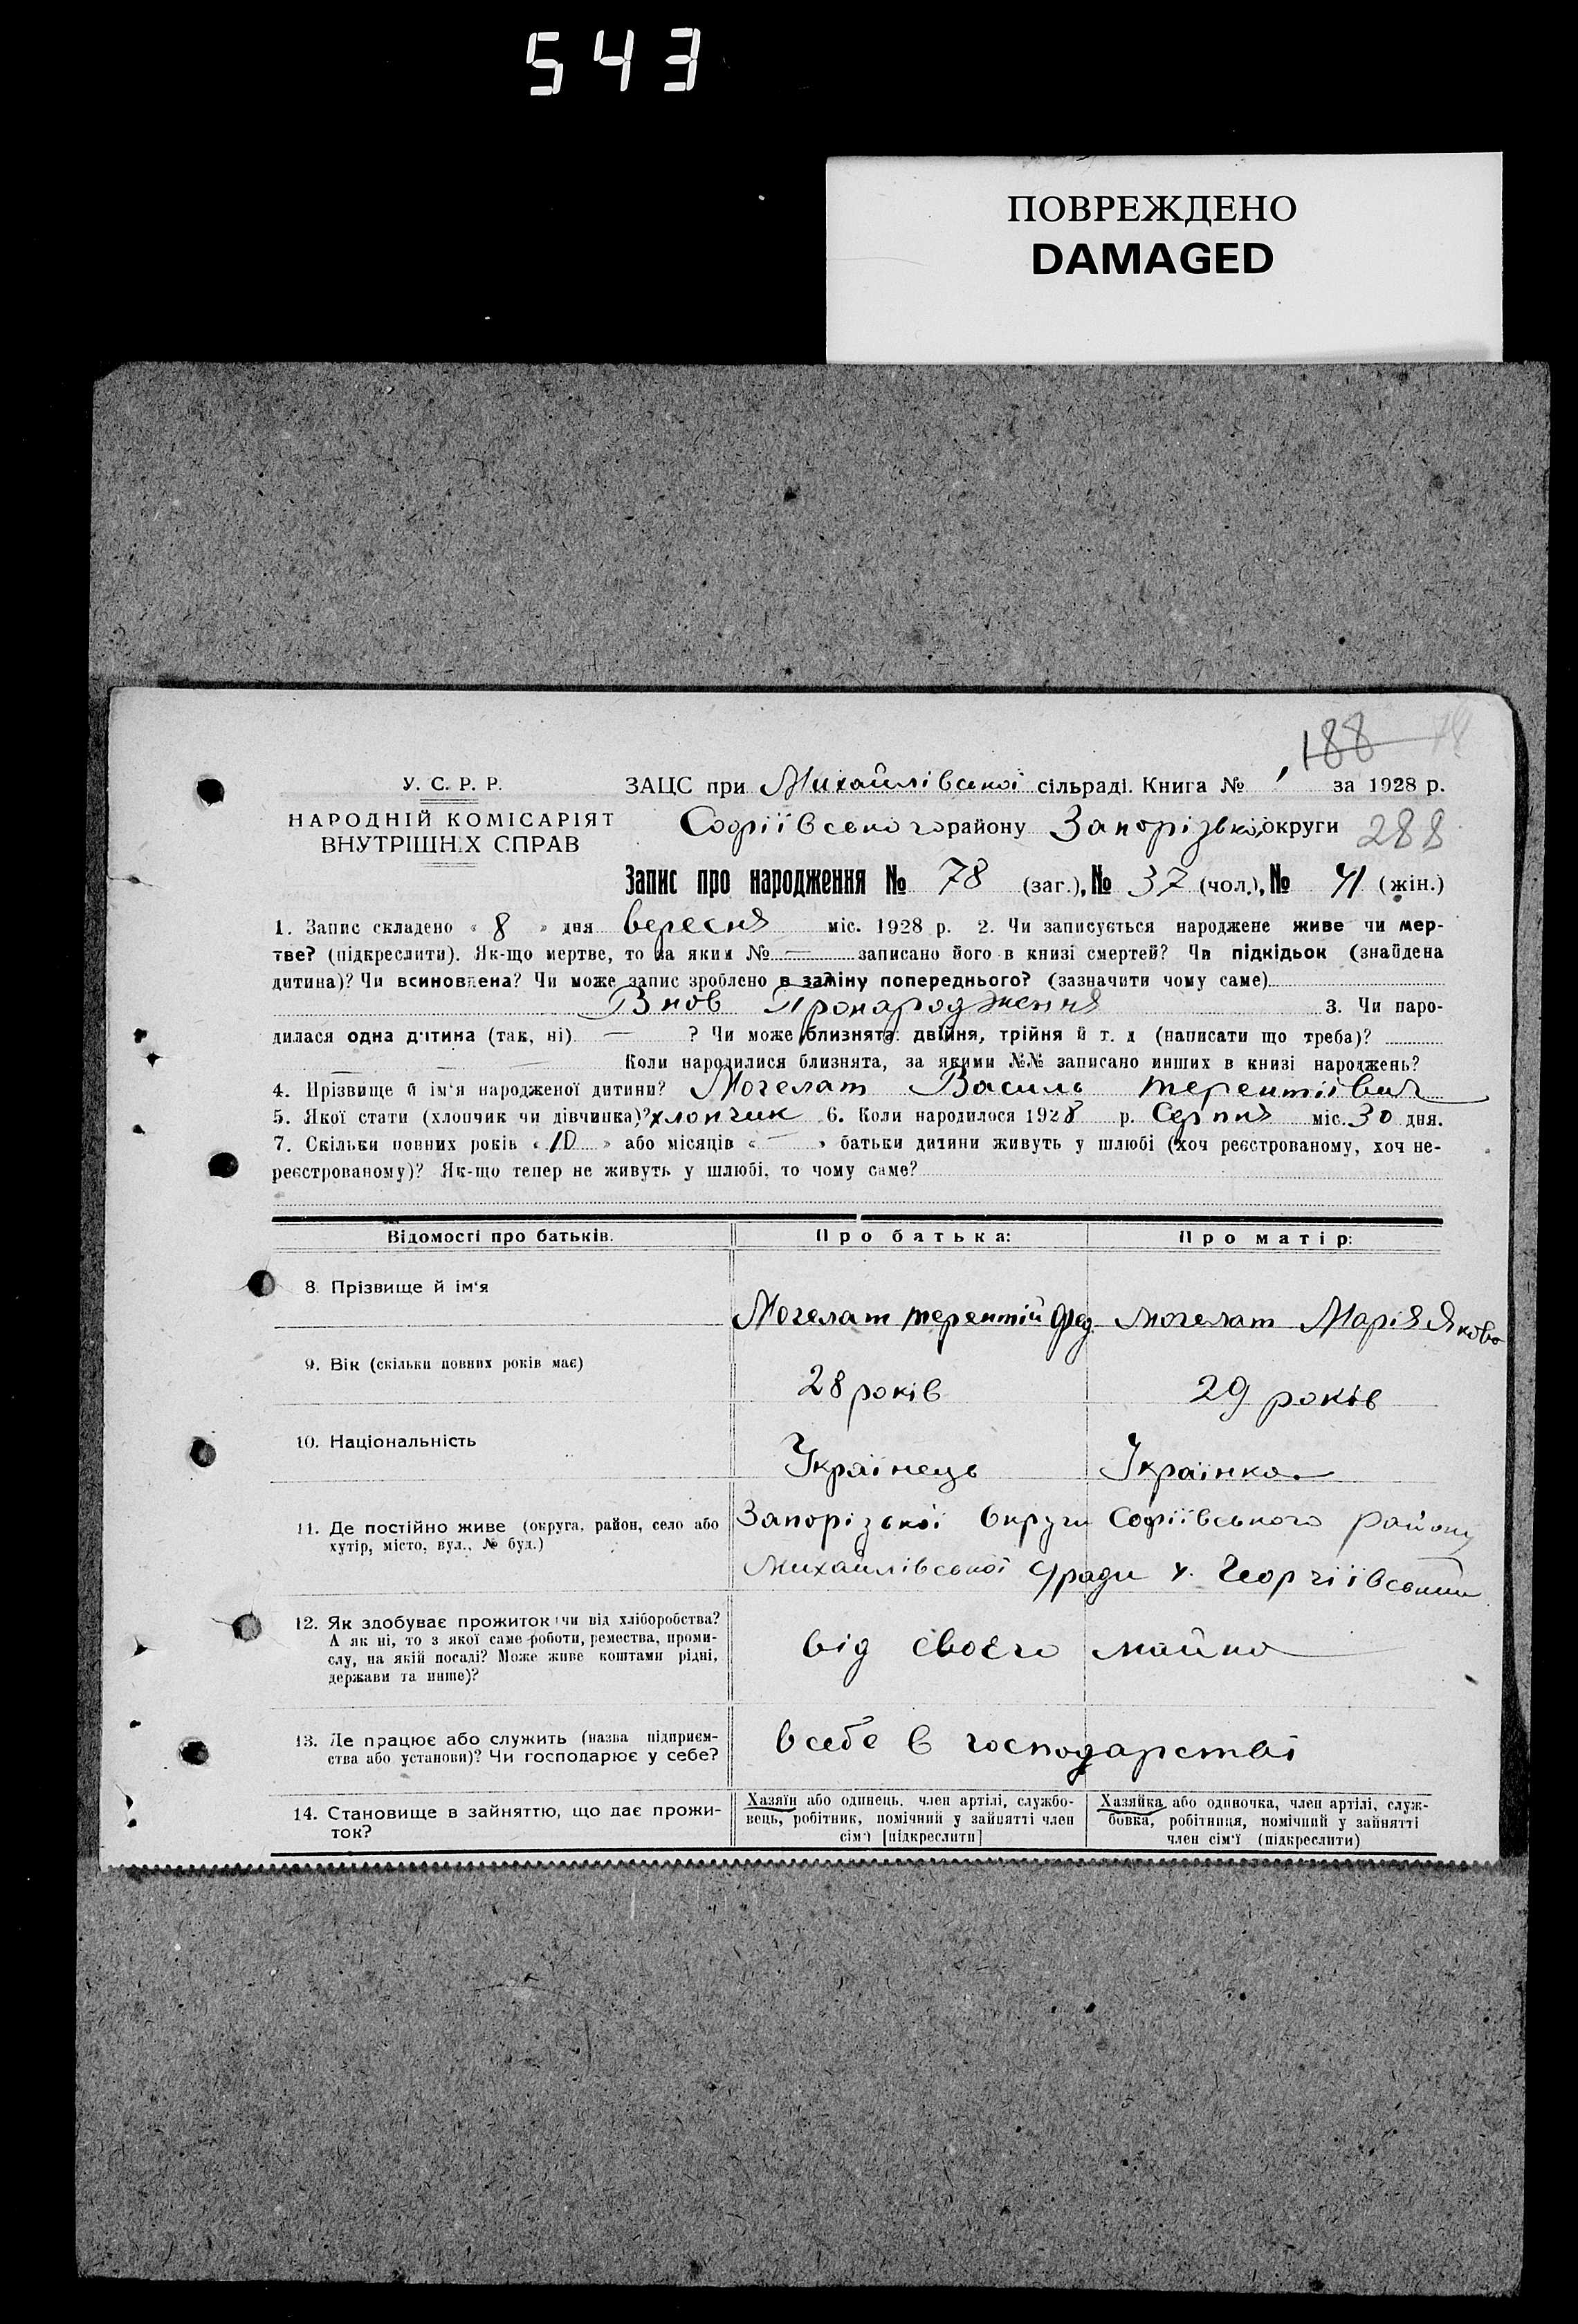 543
ПОВРЕЖДЕНО
DAMAGED
188
У. С. Р. Р.
НАРОДНІЙ КОМІСАРІЯТ
ВНУТРІШНІХ СПРАВ
ЗАЦС при Михайлівської сільраді. Книга № 1 за 1928 р.
Софіївського району Запорізької округи 288
Запис про народження № 78 (заг.), № 37 (чол.), № 41 (жін.)
1. Запис складено « 8 » дня вересня міс. 1928 р. 2. Чи записується народжене живе чи мер-
тве? (підкреслити). Як-що мертве, то за яким № — записано його в книзі смертей? Чи підкідьок (знайдена
дитина)? Чи всиновлена? Чи може запис зроблено в заміну попереднього? (зазначити чому саме)
Внов Пронародження 3. Чи наро-
дилася одна дитина (так, ні) — ? Чи може близнята: двійня, трійня й т. д (написати що треба)?
Коли народилися близнята, за якими №№ записано инших в книзі народжень?
4. Прізвище й ім'я народженої дитини? Могелат Василь терентіївич
5. Якої стати (хлопчик чи дівчинка)? хлопчик 6. Коли народилося 1928 р. Серпня міс. 30 дня.
7. Скільки повних років « 10 » або місяців « — » батьки дитини живуть у шлюбі (хоч реєстрованому, хоч не-
реєстрованому)? Як-що тепер не живуть у шлюбі, то чому саме?
Відомості про батьків.
Про батька:
Про матір:
8. Прізвище й ім'я
Могелат терентій Фед.
могелат Марія Яково
9. Вік (скільки повних років має)
28 років
29 років
10. Національність
Українець
Українка
11. Де постійно живе (округа, район, село або
хутір, місто, вул., № буд.)
Запорізької округи Софіївського району
Михайлівської с/ради х. Георгіївський
12. Як здобуває прожиток: чи від хліборобства?
А як ні, то з якої саме роботи, ремества, проми-
слу, на якій посаді? Може живе коштами рідні,
держави та инше)?
від своєго майна
13. Де працює або служить (назва підприєм-
ства або установи)? Чи господарює у себе?
всебе в господарстві
14. Становище в зайняттю, що дає прожи-
ток?
Хазяїн або одинець, член артілі, службо-
вець, робітник, помічний у зайнятті член
сім'ї [підкреслити]
Хазяйка або одиночка, член артілі, служ-
бовка, робітниця, помічний у зайнятті
член сім'ї (підкреслити)